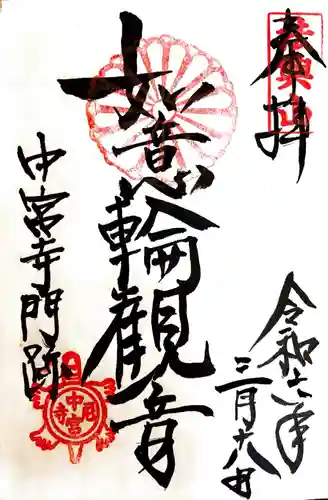 奉拝
如意輪観音
中宮寺門跡
令和六年
三月十八日
中宮寺印